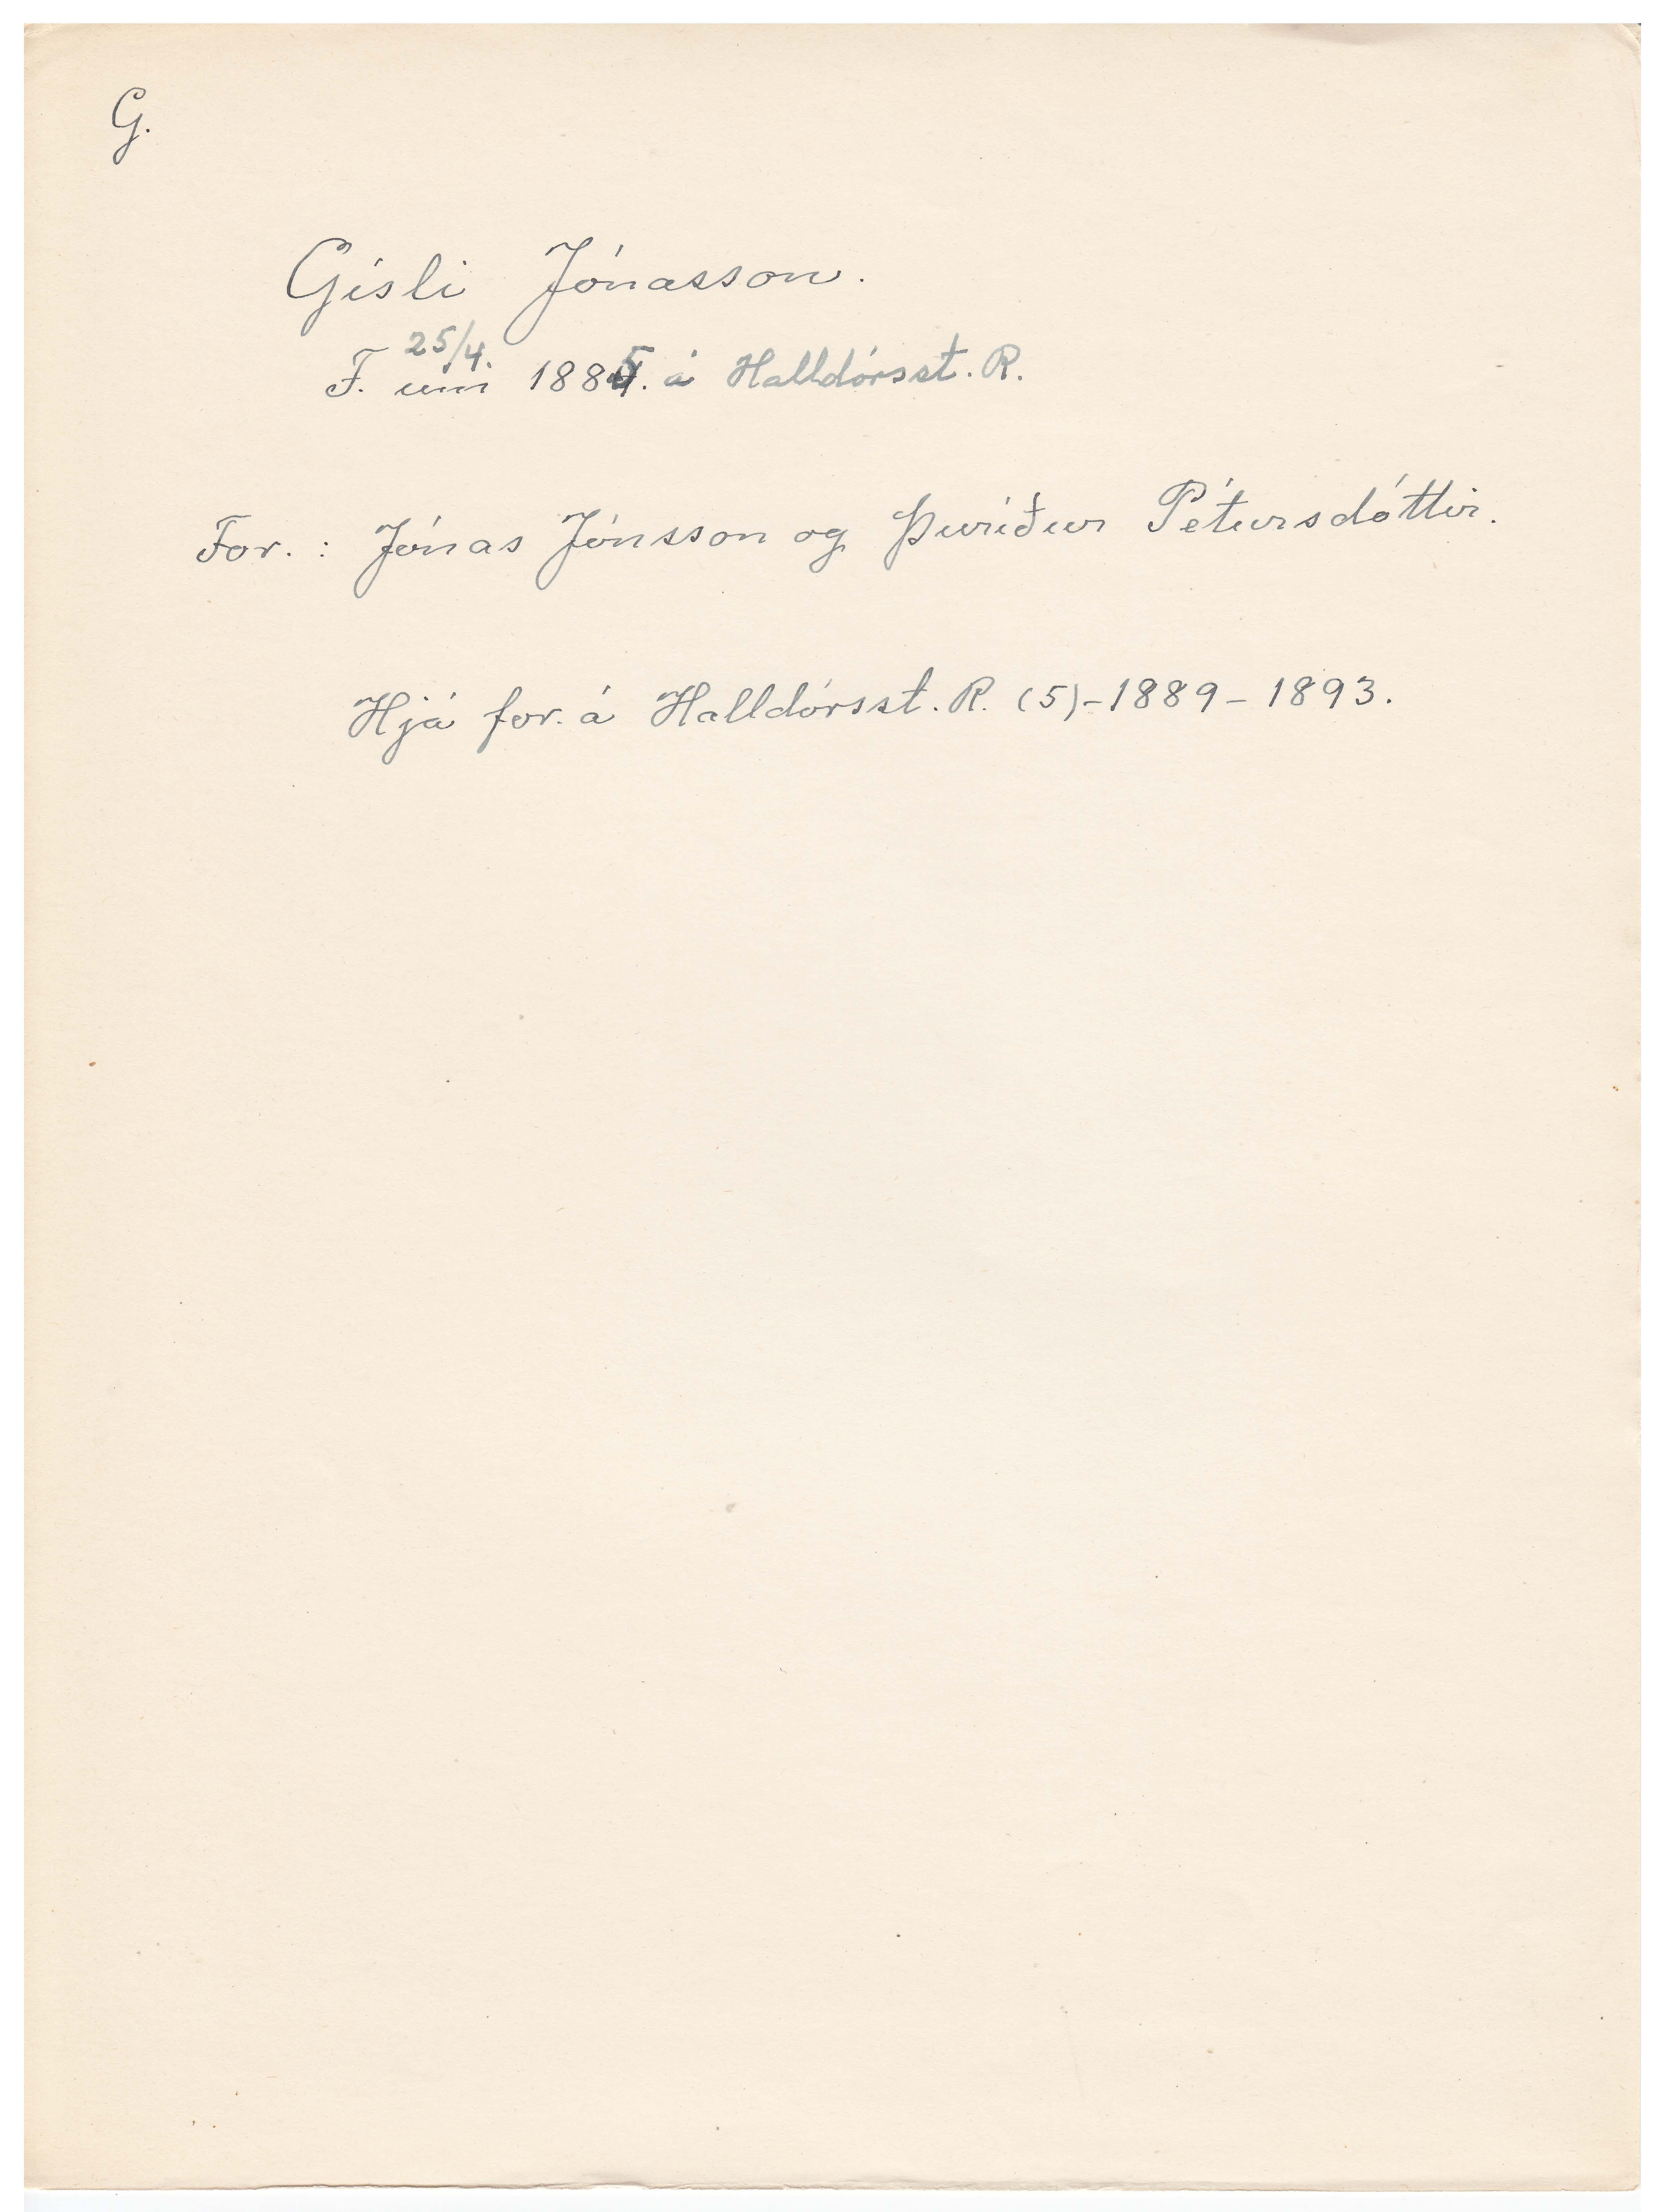 G.
Gísli Jónasson.
25/4.
F. um 1885. á Halldórsst. R.
For. : Jónas Jónsson og Þuríður Pétursdóttir.
Hjá for. á Halldórsst. R. (5)-1889-1893.